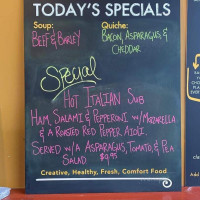 TODAY'S SPECIALS
Soup: Quiche:
BEEF & BARLEY BACON, ASPARAGUS, &
CHEDDAR
Special
HOT ITALIAN SUB
HAM, SALAMI & PEPPERONI W/ MOZZARELLA
& A ROASTED RED PEPPER AIOLI.
SERVED W/ A ASPARAGUS, TOMATO, & PEA
SALAD $9.95
Creative, Healthy, Fresh, Comfort Food